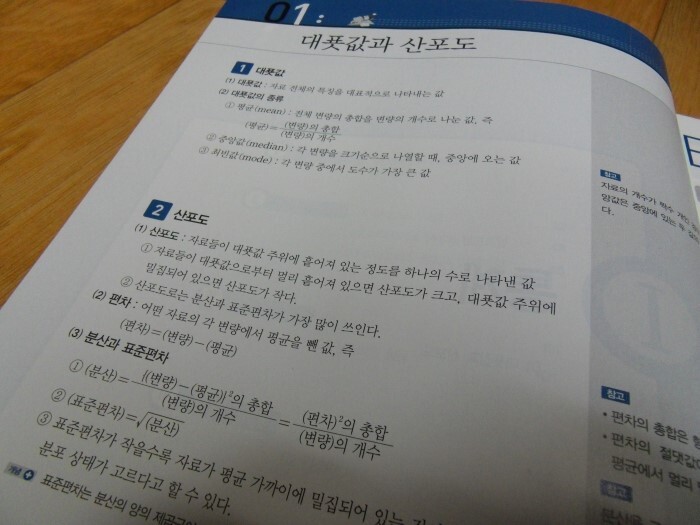 01:
대푯값과 산포도
1 대푯값
(1) 대푯값 : 자료 전체의 특징을 대표적으로 나타내는 값
(2) 대푯값의 종류
① 평균(mean) : 전체 변량의 총합을 변량의 개수로 나눈 값, 즉
(평균)=(변량)의 총합/(변량)의 개수
② 중앙값(median) : 각 변량을 크기순으로 나열할 때, 중앙에 오는 값
③ 최빈값(mode) : 각 변량 중에서 도수가 가장 큰 값
2 산포도
(1) 산포도 : 자료들이 대푯값 주위에 흩어져 있는 정도를 하나의 수로 나타낸 값
① 자료들이 대푯값으로부터 멀리 흩어져 있으면 산포도가 크고, 대푯값 주위에
밀집되어 있으면 산포도가 작다.
② 산포도로는 분산과 표준편차가 가장 많이 쓰인다.
(2) 편차 : 어떤 자료의 각 변량에서 평균을 뺀 값, 즉
(편차)=(변량)-(평균)
(3) 분산과 표준편차
① (분산)={(변량)-(평균)}²의 총합/(변량)의 개수=(편차)²의 총합/(변량)의 개수
② (표준편차)=√(분산)
③ 표준편차가 작을수록 자료가 평균 가까이에 밀집되어 있는
분포 상태가 고르다고 할 수 있다.
개념 + 표준편차는 분산의 양의
참고
자료의 개수가 짝수
앙값은 중앙에 있는 두
다.
참고
• 편차의 총합은
• 편차의 절댓값
평균에서 멀리
참고
분산은